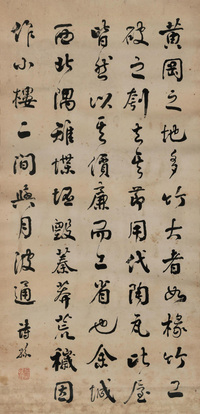 黃岡之地多竹大者如椽竹工
破之刳去其節用代陶瓦比屋
皆然以其價廉而工省也余城
西北隅雉堞圮毀蓁莽荒穢因
作小樓二間與月波通 詩孫